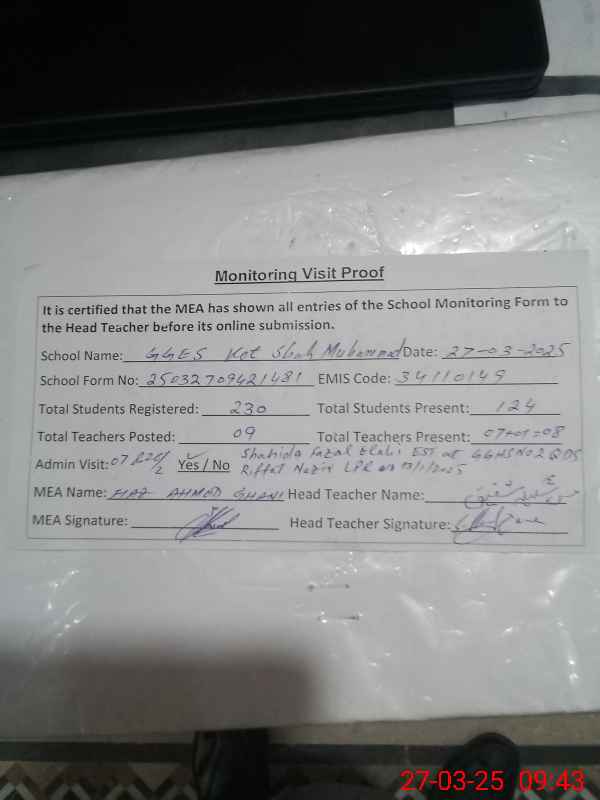 Monitoring Visit Proof
It is certified that the MEA has shown all entries of the School Monitoring Form to
the Head Teacher before its online submission.
School Name: GGES Kot Shah Muhammad Date: 27-03-2025
School Form No: 25032709421481 EMIS Code: 34110149
Total Students Registered: 230 Total Students Present: 124
Total Teachers Posted: 09 Total Teachers Present: 07+01=08
Admin Visit: Yes / No Shahida Fazal Elahi EST at GGHS NO 2 QDS
Riffat Nazir LPR
MEA Name: AHMED GHANI Head Teacher Name:
MEA Signature: Head Teacher Signature:
27-03-25 09:43